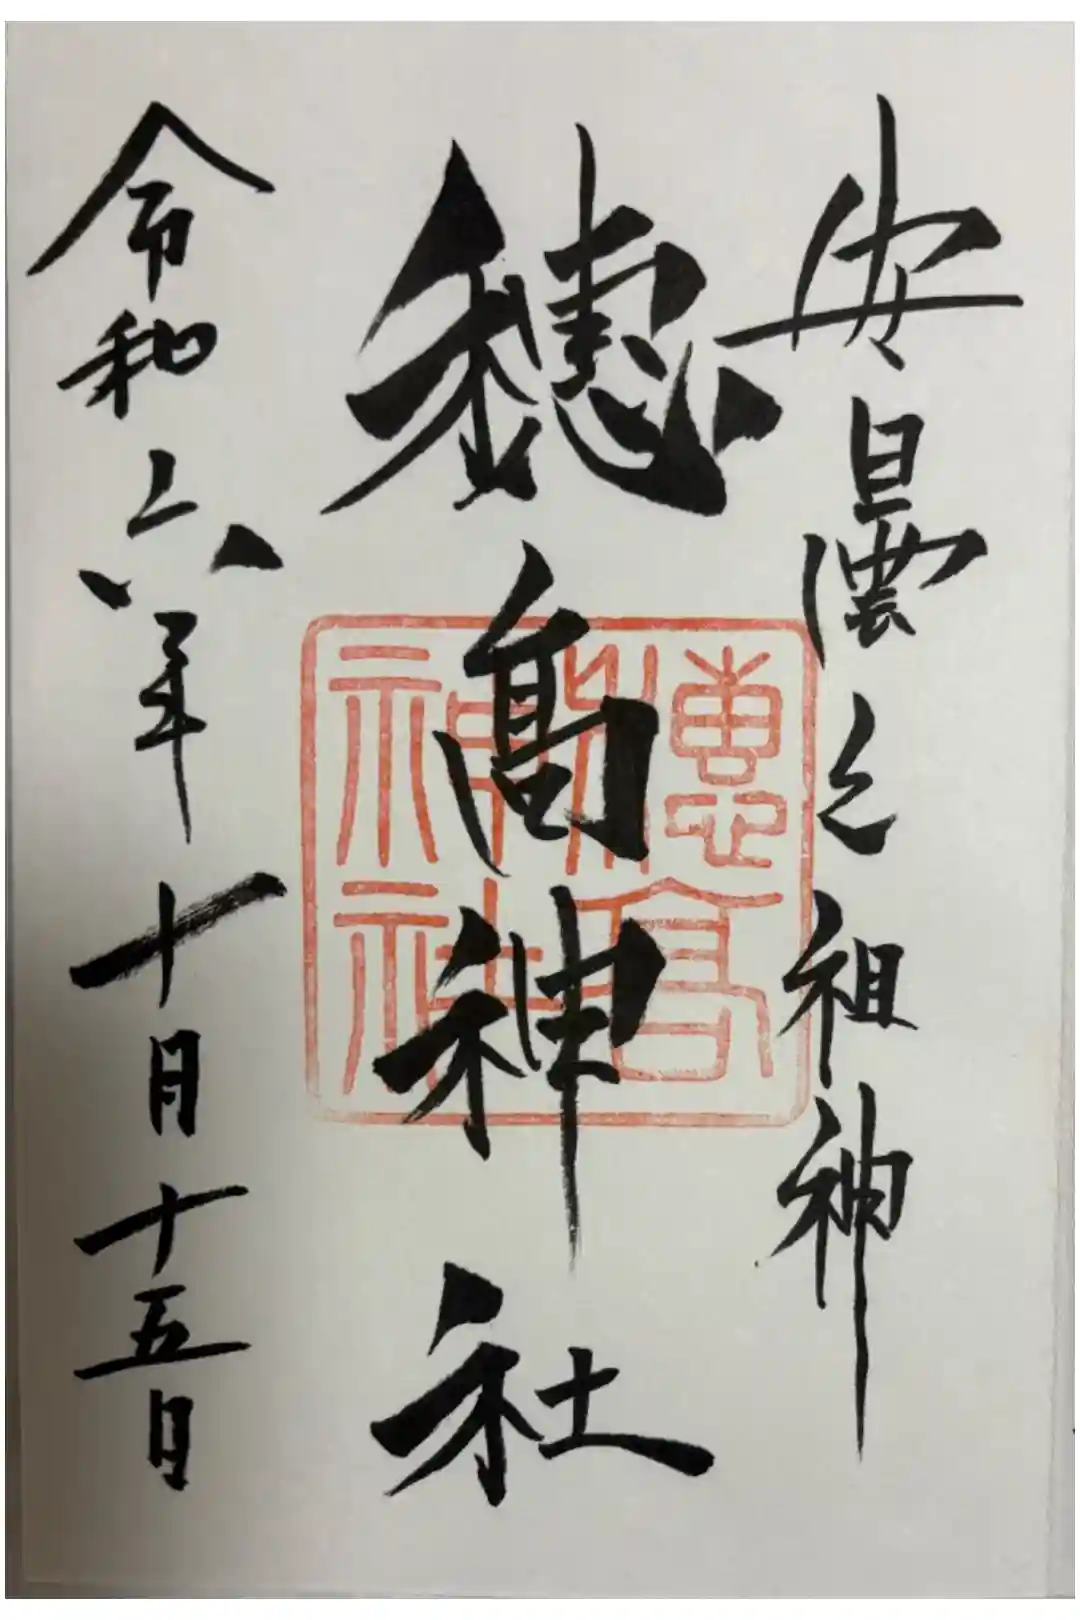 安曇之祖神
穂髙神社
穗高神社
令和六年十月十五日